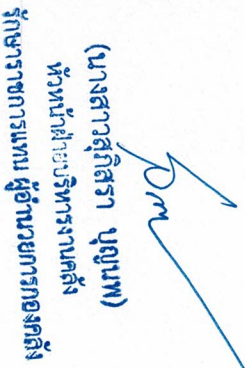 (นางสาวสุภิสรา บุญนพ)
หัวหน้าฝ่ายบริหารงานคลัง
รักษาราชการแทน ผู้อำนวยการกองคลัง